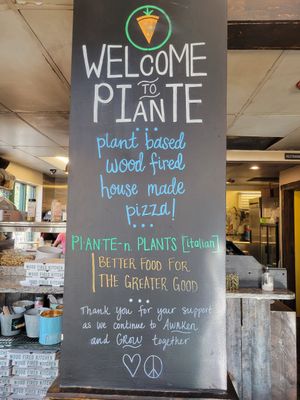 WELCOME
TO
PIANTE
plant based
wood fired
house made
pizza!
PIANTE-n. PLANTS [italian]
BETTER FOOD FOR
THE GREATER GOOD
Thank you for your support
as we continue to AWAKEN
and GROW together
WOOD FIRED KITCHEN